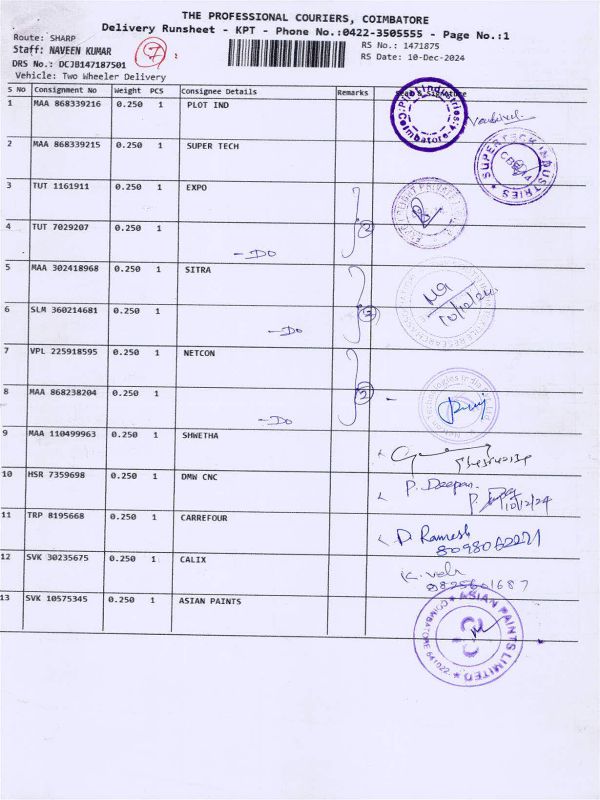 THE PROFESSIONAL COURIERS, COIMBATORE
Delivery Runsheet - KPT - Phone No.:0422-3505555 - Page No.:1
Route: SHARP
RS No.: 1471875
Staff: NAVEEN KUMAR
7
RS Date: 10-Dec-2024
DRS No.: DCJB147187501
Vehicle: Two Wheeler Delivery
S NO Consignment No Weight PCS Consignee Details Remarks Signature
1 MAA 868339216 0.250 1 PLOT IND
Coimbatore-4
2 MAA 868339215 0.250 1 SUPER TECH
SUPER TECH INDUSTRIES
3 TUT 1161911 0.250 1 EXPO
4 TUT 7029207 0.250 1
- Do
2
5 MAA 302418968 0.250 1 SITRA
10/12/24
6 SLM 360214681 0.250 1
- Do
2
7 VPL 225918595 0.250 1 NETCON
8 MAA 868238204 0.250 1
- Do
2
9 MAA 110499963 0.250 1 SHWETHA
10 HSR 7359698 0.250 1 DMW CNC
P. Deepan
10/12/24
11 TRP 8195668 0.250 1 CARREFOUR
D. Ramesh
8098060271
12 SVK 30235675 0.250 1 CALIX
K. Velu
8825601687
13 SVK 10575345 0.250 1 ASIAN PAINTS
ASIAN PAINTS LIMITED
COIMBATORE 641022